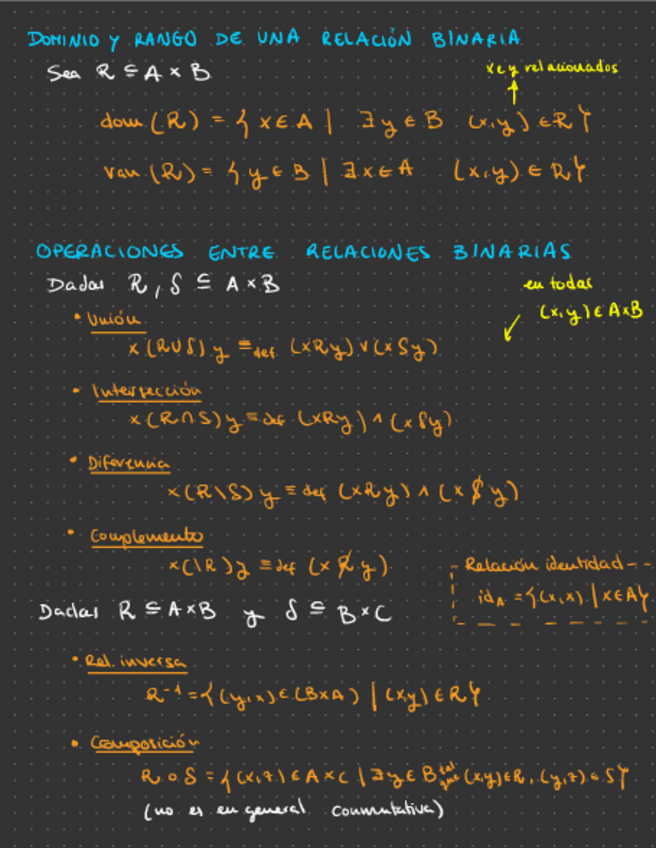 DOMINIO Y RANGO DE UNA RELACIÓN BINARIA
Sea R ⊆ A × B
x e y relacionados
dom (R) = { x ∈ A | ∃ y ∈ B (x,y) ∈ R }
ran (R) = { y ∈ B | ∃ x ∈ A (x,y) ∈ R }
OPERACIONES ENTRE RELACIONES BINARIAS
Dadas R, S ⊆ A × B
en todas
(x,y) ∈ A×B
• Unión
x (R∪S) y ≡def (xRy) ∨ (xSy)
• Intersección
x (R∩S) y ≡def (xRy) ∧ (xSy)
• Diferencia
x (R\S) y ≡def (xRy) ∧ (x $ y)
• Complemento
x (\R) y ≡def (x R̸ y)
Relación identidad
id_A = {(x,x) | x∈A}
Dadas R ⊆ A×B y S ⊆ B×C
• Rel. inversa
R⁻¹ = { (y,x) ∈ (B×A) | (x,y) ∈ R }
• Composición
R ∘ S = { (x,z) ∈ A×C | ∃ y ∈ B tal que (x,y) ∈ R, (y,z) ∈ S }
(no es en general conmutativa)